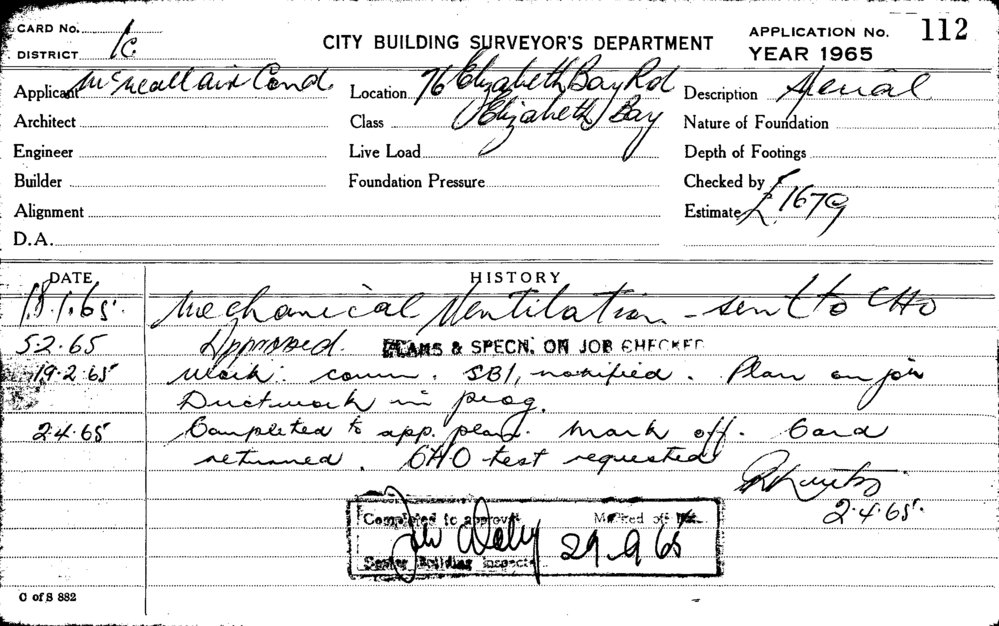 CARD No.
DISTRICT 1c
CITY BUILDING SURVEYOR'S DEPARTMENT
APPLICATION No. 112
YEAR 1965
Applicant McNeall Air Cond.
Location 76 Elizabeth Bay Rd
Elizabeth Bay
Description Aerial
Architect
Class
Nature of Foundation
Engineer
Live Load
Depth of Footings
Builder
Foundation Pressure
Checked by
Alignment
Estimate £1679
D.A.
DATE HISTORY
18.1.65. Mechanical Ventilation - sent to CHO
5.2.65 Approved. PLANS & SPECN. ON JOB CHECKED
19.2.65 Work comm. SBI, notified. Plan on job
Ductwork in prog.
2.4.65 Completed to app. plans. Mark off. Card
returned. CHO test requested
2.4.65.
Completed to approval Marked off
29.9.65
Senior Building Inspector
C of S 882